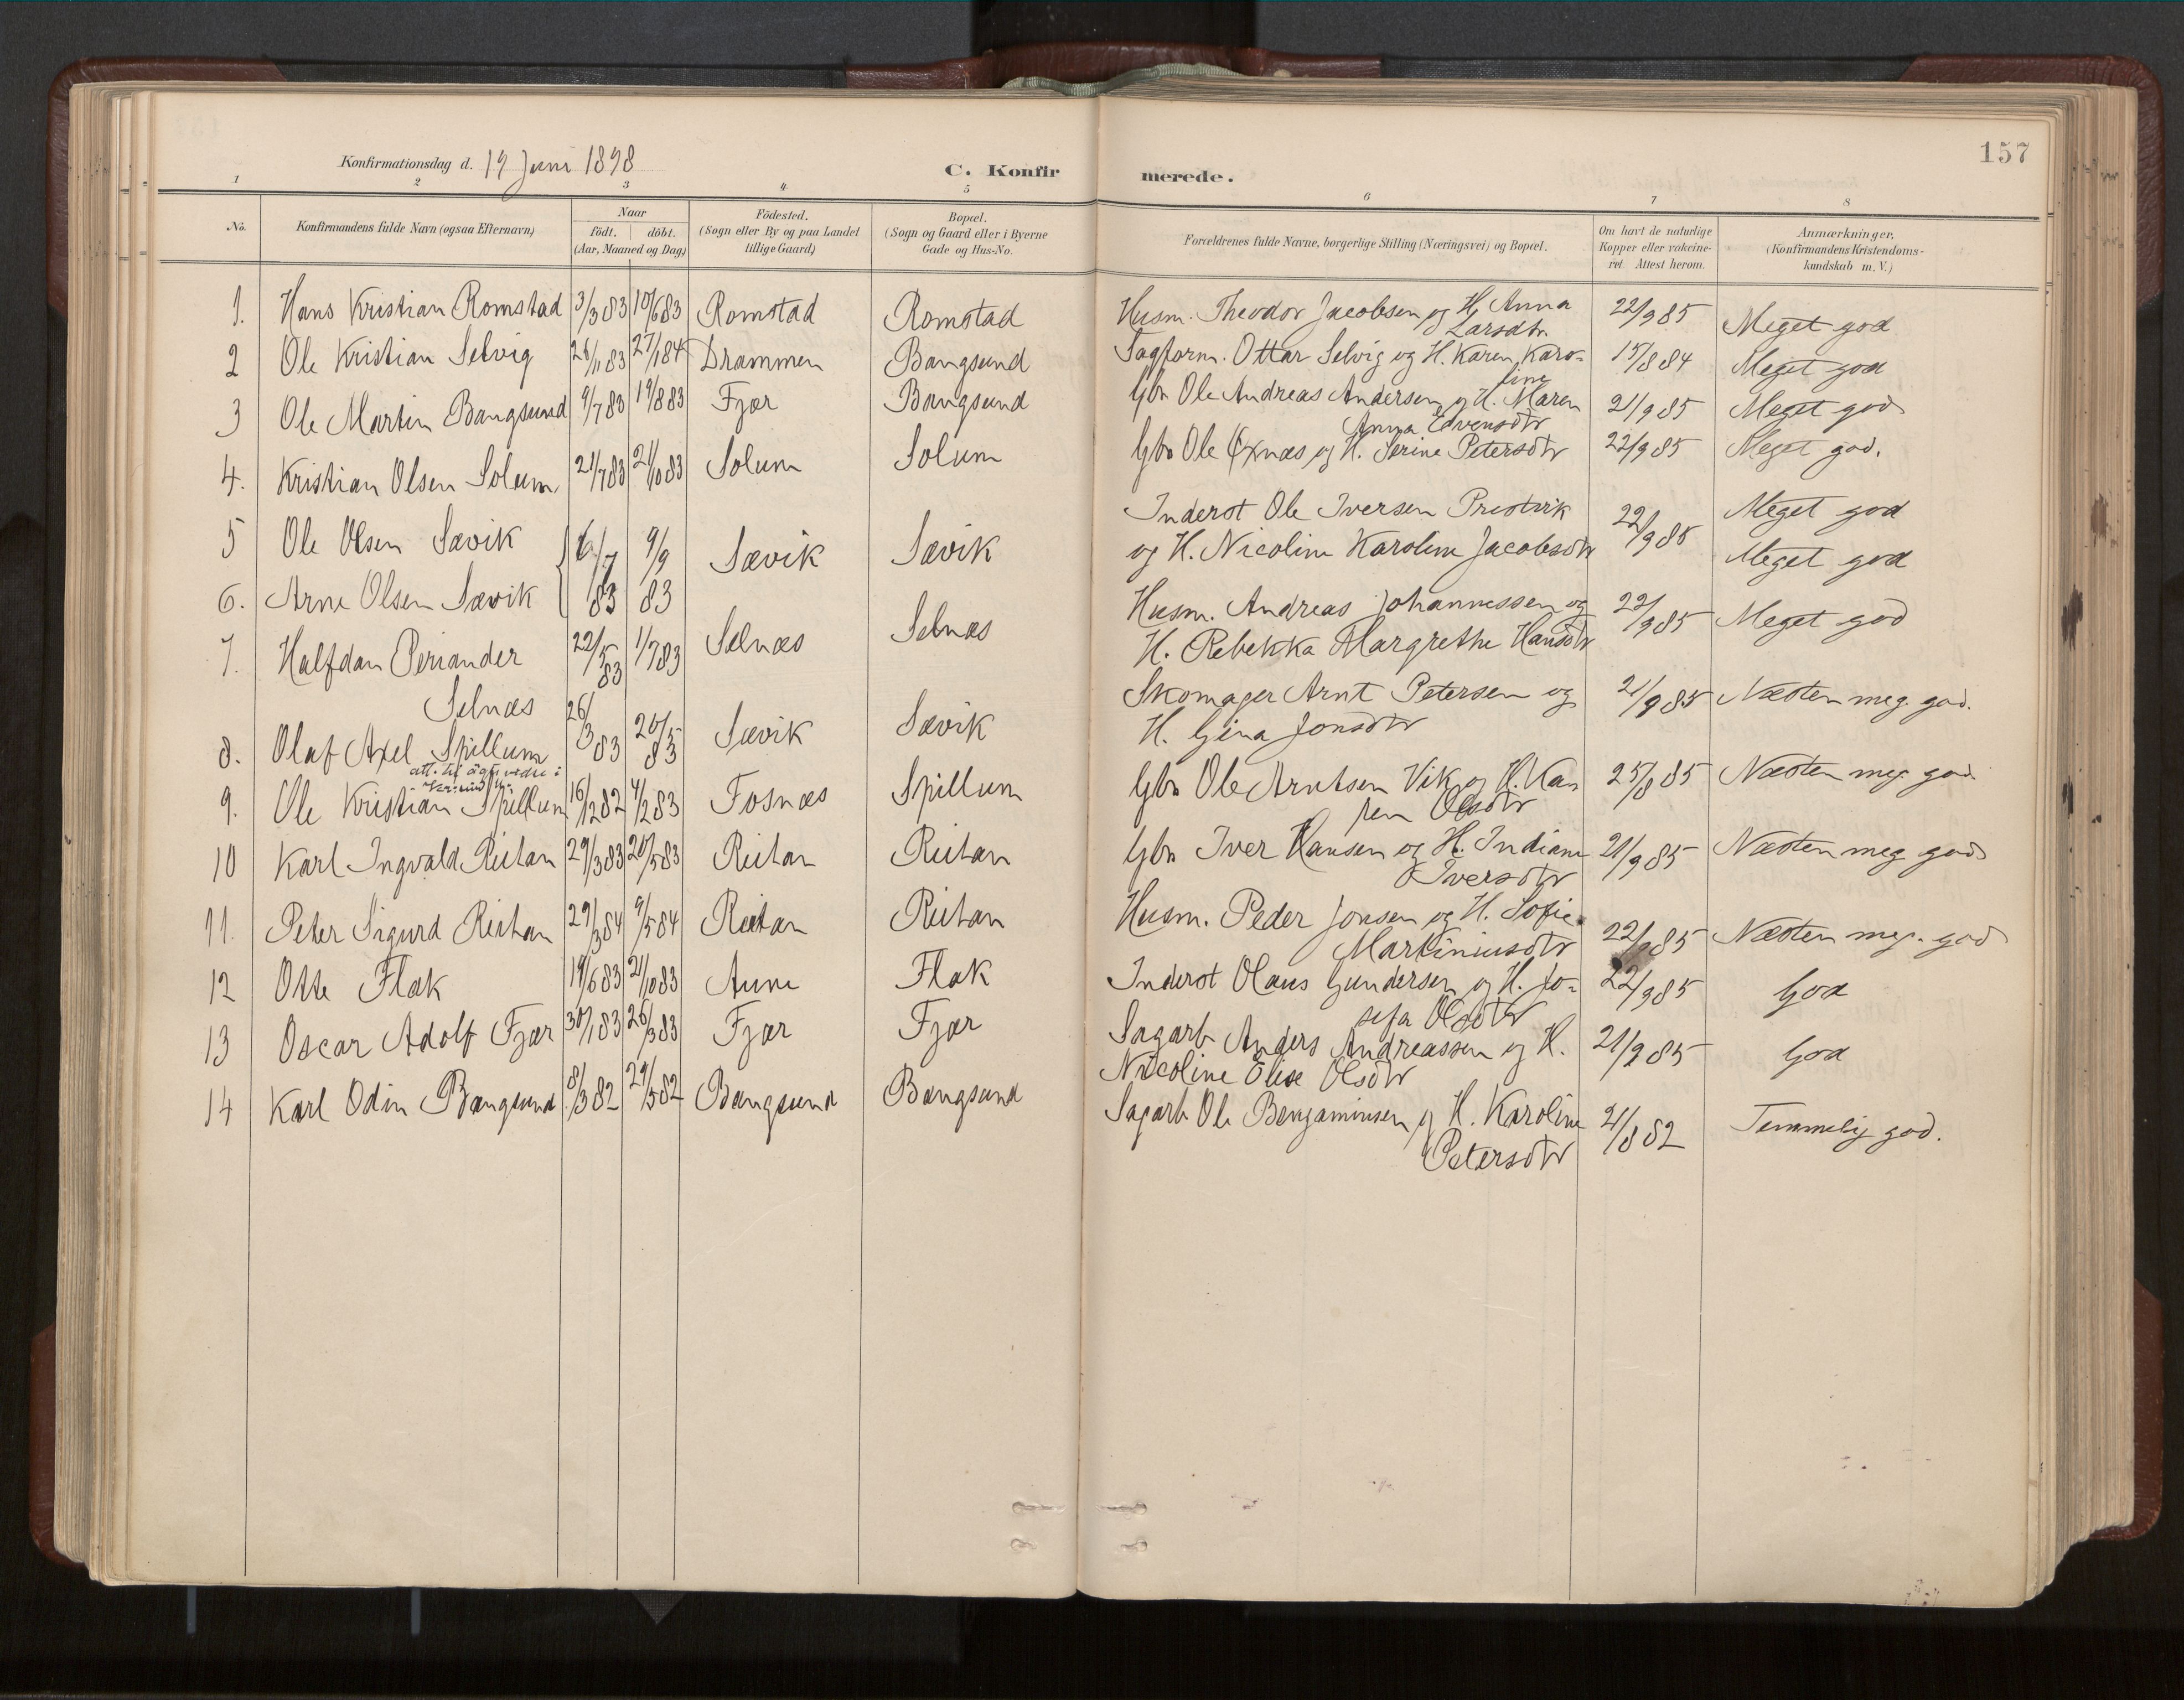 157
Konfirmationsdag d. 19 Juni 1898
C. Konfirmerede.
1 2 3 4 5 6 7 8
No.
Konfirmandens fulde Navn (ogsaa Efternavn)
Naar
födt. döbt.
(Aar, Maaned og Dag)
Födested.
(Sogn eller By og paa Landet
tillige Gaard)
Bopæl.
(Sogn og Gaard eller i Byerne
Gade og Hus-No.
Forældrenes fulde Navne, borgerlige Stilling (Næringsvei) og Bopæl.
Om havt de naturlige
Kopper eller vakcine-
ret. Attest herom.
Anmærkninger.
(Konfirmandens Kristendoms-
kundskab m. V.)
1. Hans Kristian Romstad 3/3 83 10/6 83 Romstad Romstad Husm. Theodor Jacobsen og H. Anna 22/9 85 Meget god
Larsdtr
2 Ole Kristian Selvig 26/11 83 27/1 84 Drammen Bangsund Sagform. Ottar Selvig og H. Karen Karo- 15/8 84 Meget god
line
3 Ole Martin Bangsund 9/7 83 19/8 83 Fjær Bangsund Gbr Ole Andreas Andersen og H. Maren 21/9 85 Meget god
Anna Edvensdtr
4. Kristian Olsen Solum 21/7 83 21/10 83 Solum Solum Gbr Ole Øxnæs og H. Serine Petersdtr 22/9 85 Meget god.
5 Ole Olsen Sævik 6/7 83 9/9 83 Sævik Sævik Inderst Ole Iversen Prestvik 22/9 85 Meget god
6. Arne Olsen Sævik og H. Nicoline Karoline Jacobsdtr Meget god
7. Halfdan Periander 22/5 83 1/7 83 Selnæs Selnæs Husm. Andreas Johannessen og 22/9 85 Meget god
Selnæs H. Rebekka Margrethe Hansdtr
8. Olaf Axel Spillum 26/3 83 20/5 83 Sævik Sævik Skomager Arnt Petersen og 21/9 85 Næsten meg. god.
H. Gina Jonsdtr
att. til
9. Ole Kristian Spillum 16/12 82 4/2 83 Fosnæs Spillum Gbr Ole Arntsen Vik og H. Ka- 25/8 85 Næsten meg. god
ren Olsdtr
10 Karl Ingvald Reitan 29/3 83 20/5 83 Reitan Reitan Gbr Iver Hansen og H. Indiane 21/9 85 Næsten meg god
Iversdtr
11. Peter Sigurd Reitan 29/3 84 9/5 84 Reitan Reitan Husm. Peder Jonsen og H. Sofie 22/9 85 Næsten meg. god
Martiniusdtr
12 Otte Flak 19/6 83 21/10 83 Aune Flak Inderst Olaus Gundersen og H. Jo- 22/9 85 God
sefa Olsdtr
13 Oscar Adolf Fjær 30/1 83 26/3 83 Fjær Fjær Sagarb Anders Andreassen og H. 21/9 85 God
Nicoline Elise Olsdtr
14 Karl Odin Bangsund 8/3 82 29/5 82 Bangsund Bangsund Sagarb Ole Benjaminsen og H. Karoline 21/8 82 Temmelig god.
Petersdtr